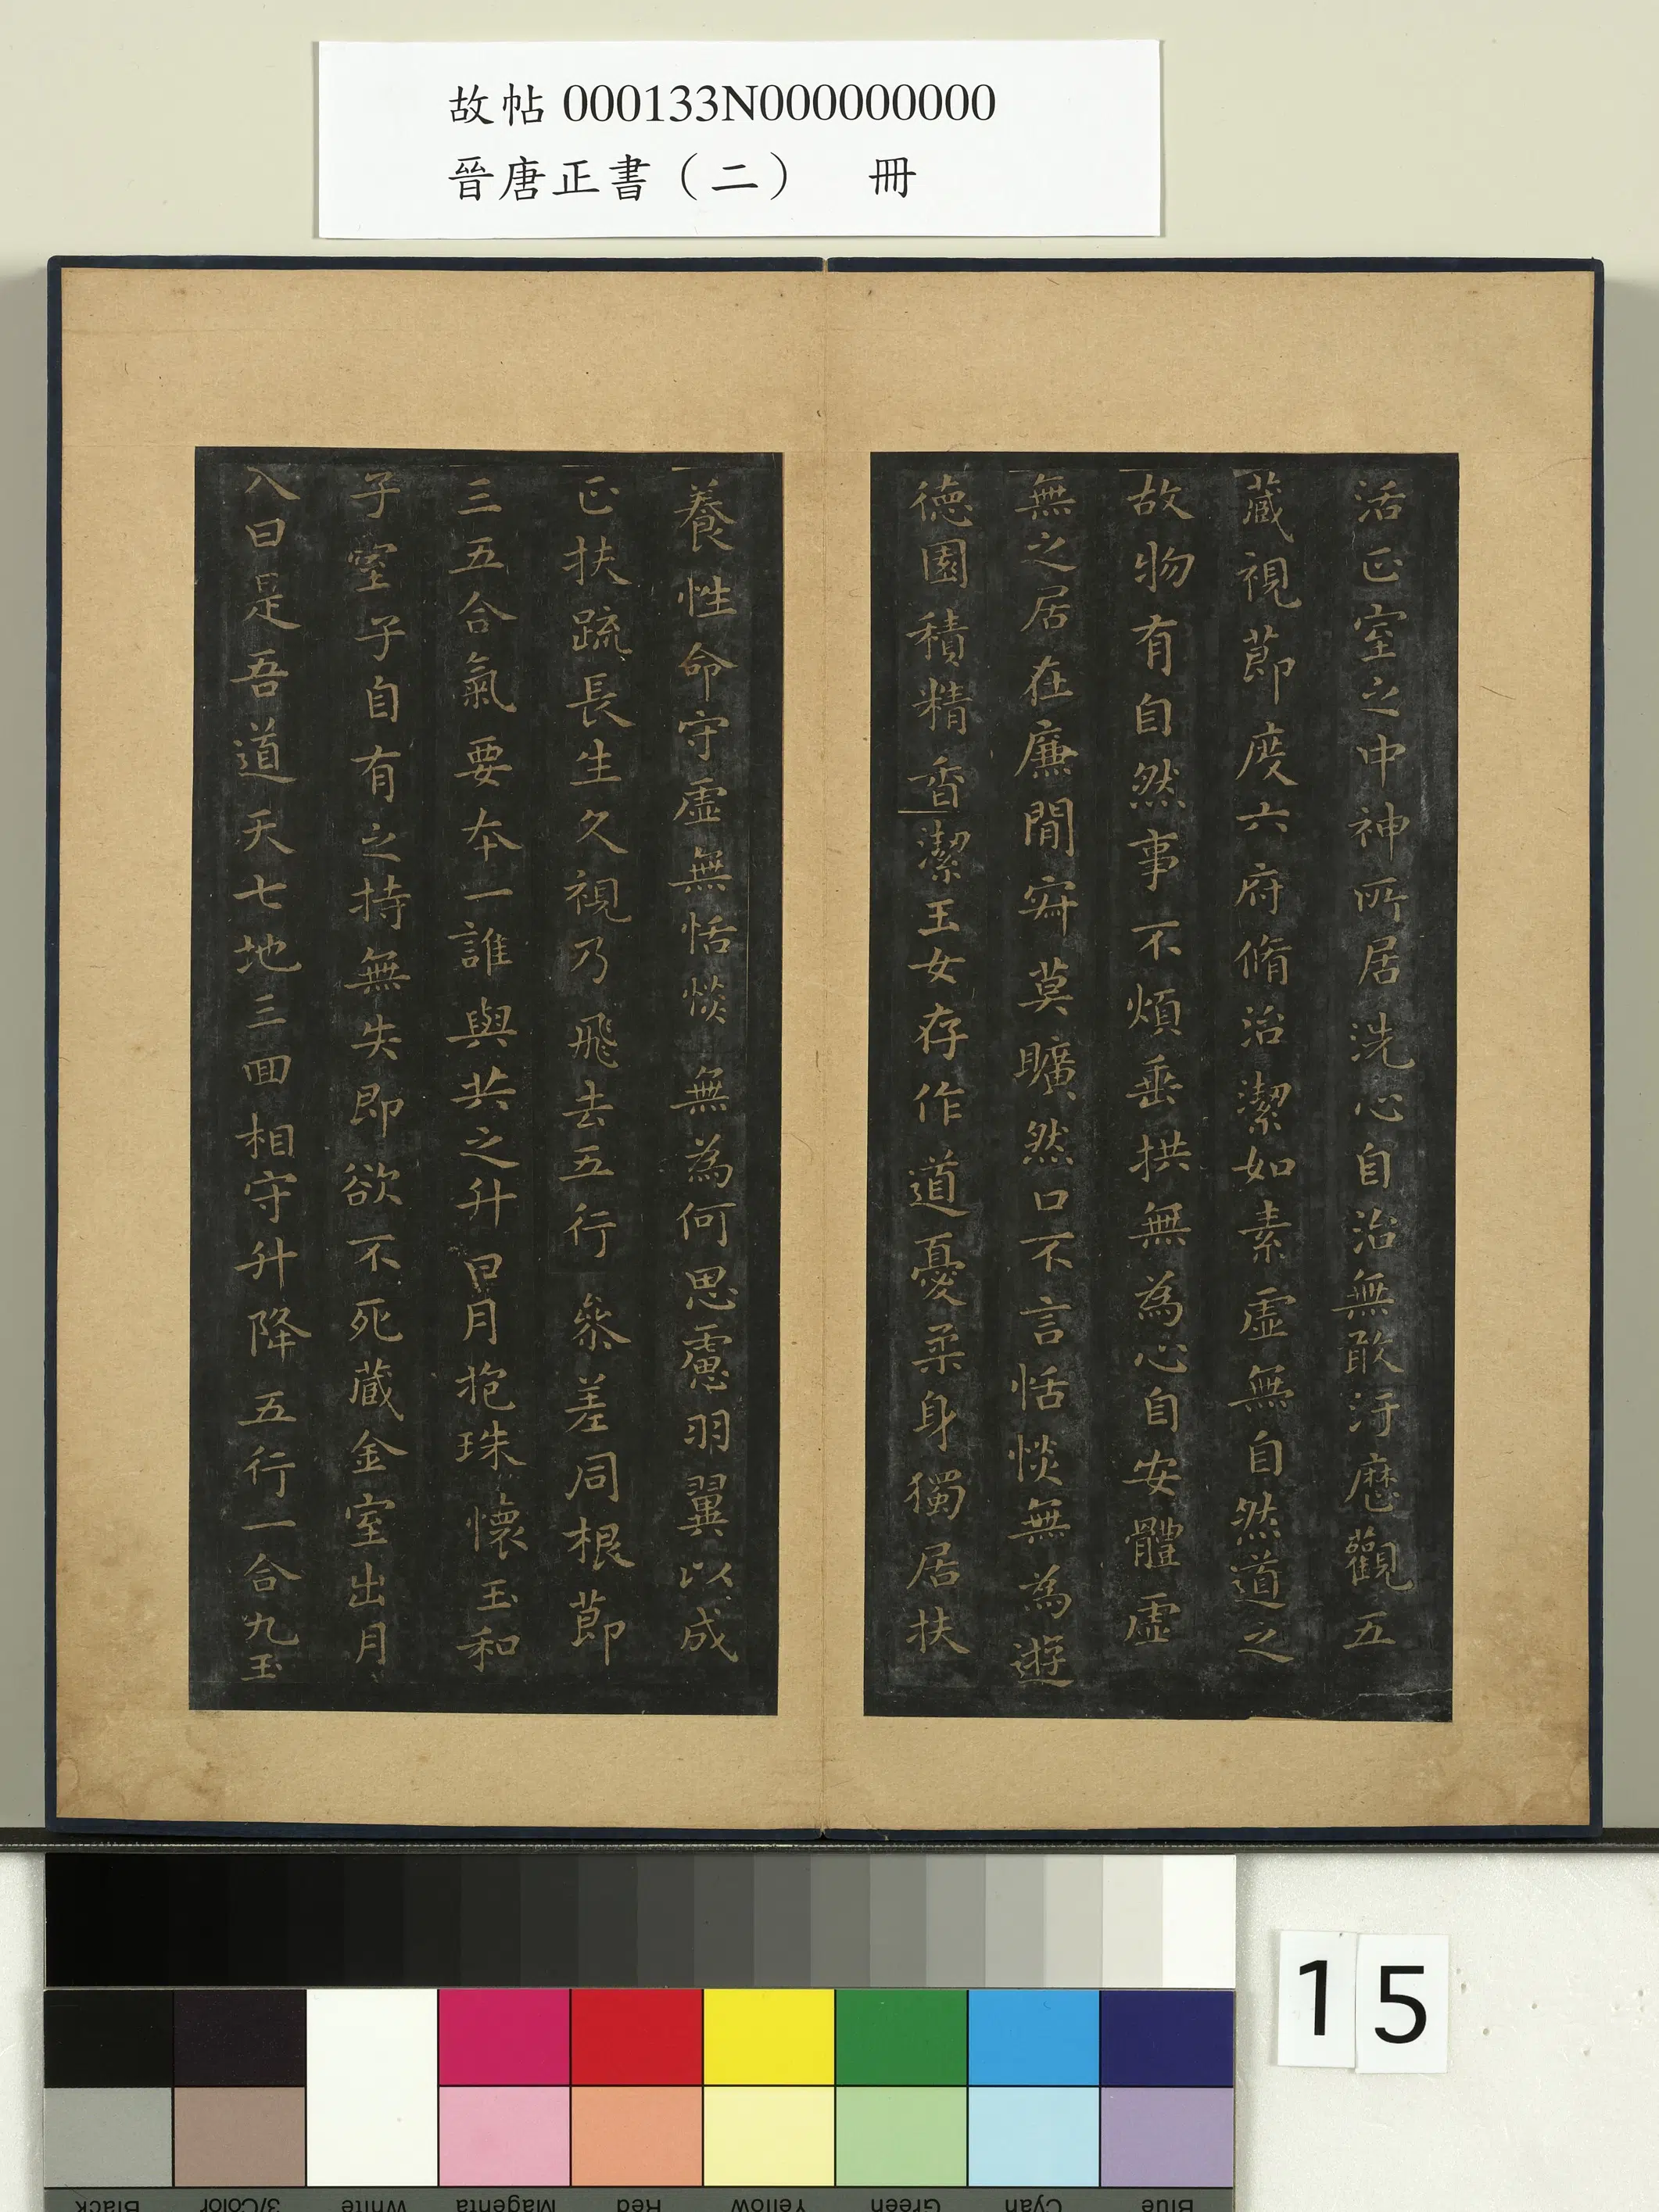 故帖 000133N000000000
晉唐正書（二） 冊
活正室之中神所居洗心自治無敢汙歷觀五
藏視節度六府脩治潔如素虛無自然道之
故物有自然事不煩垂拱無為心自安體虛
無之居在廉間寂莫曠然口不言恬惔無為遊
德園積精香潔玉女存作道憂柔身獨居扶
養性命守虛無恬惔無為何思慮羽翼以成
正扶疏長生久視乃飛去五行參差同根節
三五合氣要本一誰與共之升日月抱珠懷玉和
子室子自有之持無失即欲不死藏金室出月
入日是吾道天七地三回相守升降五行一合九玉
15
Black
3/Color
White
Magenta
Red
Yellow
Green
Cyan
Blue